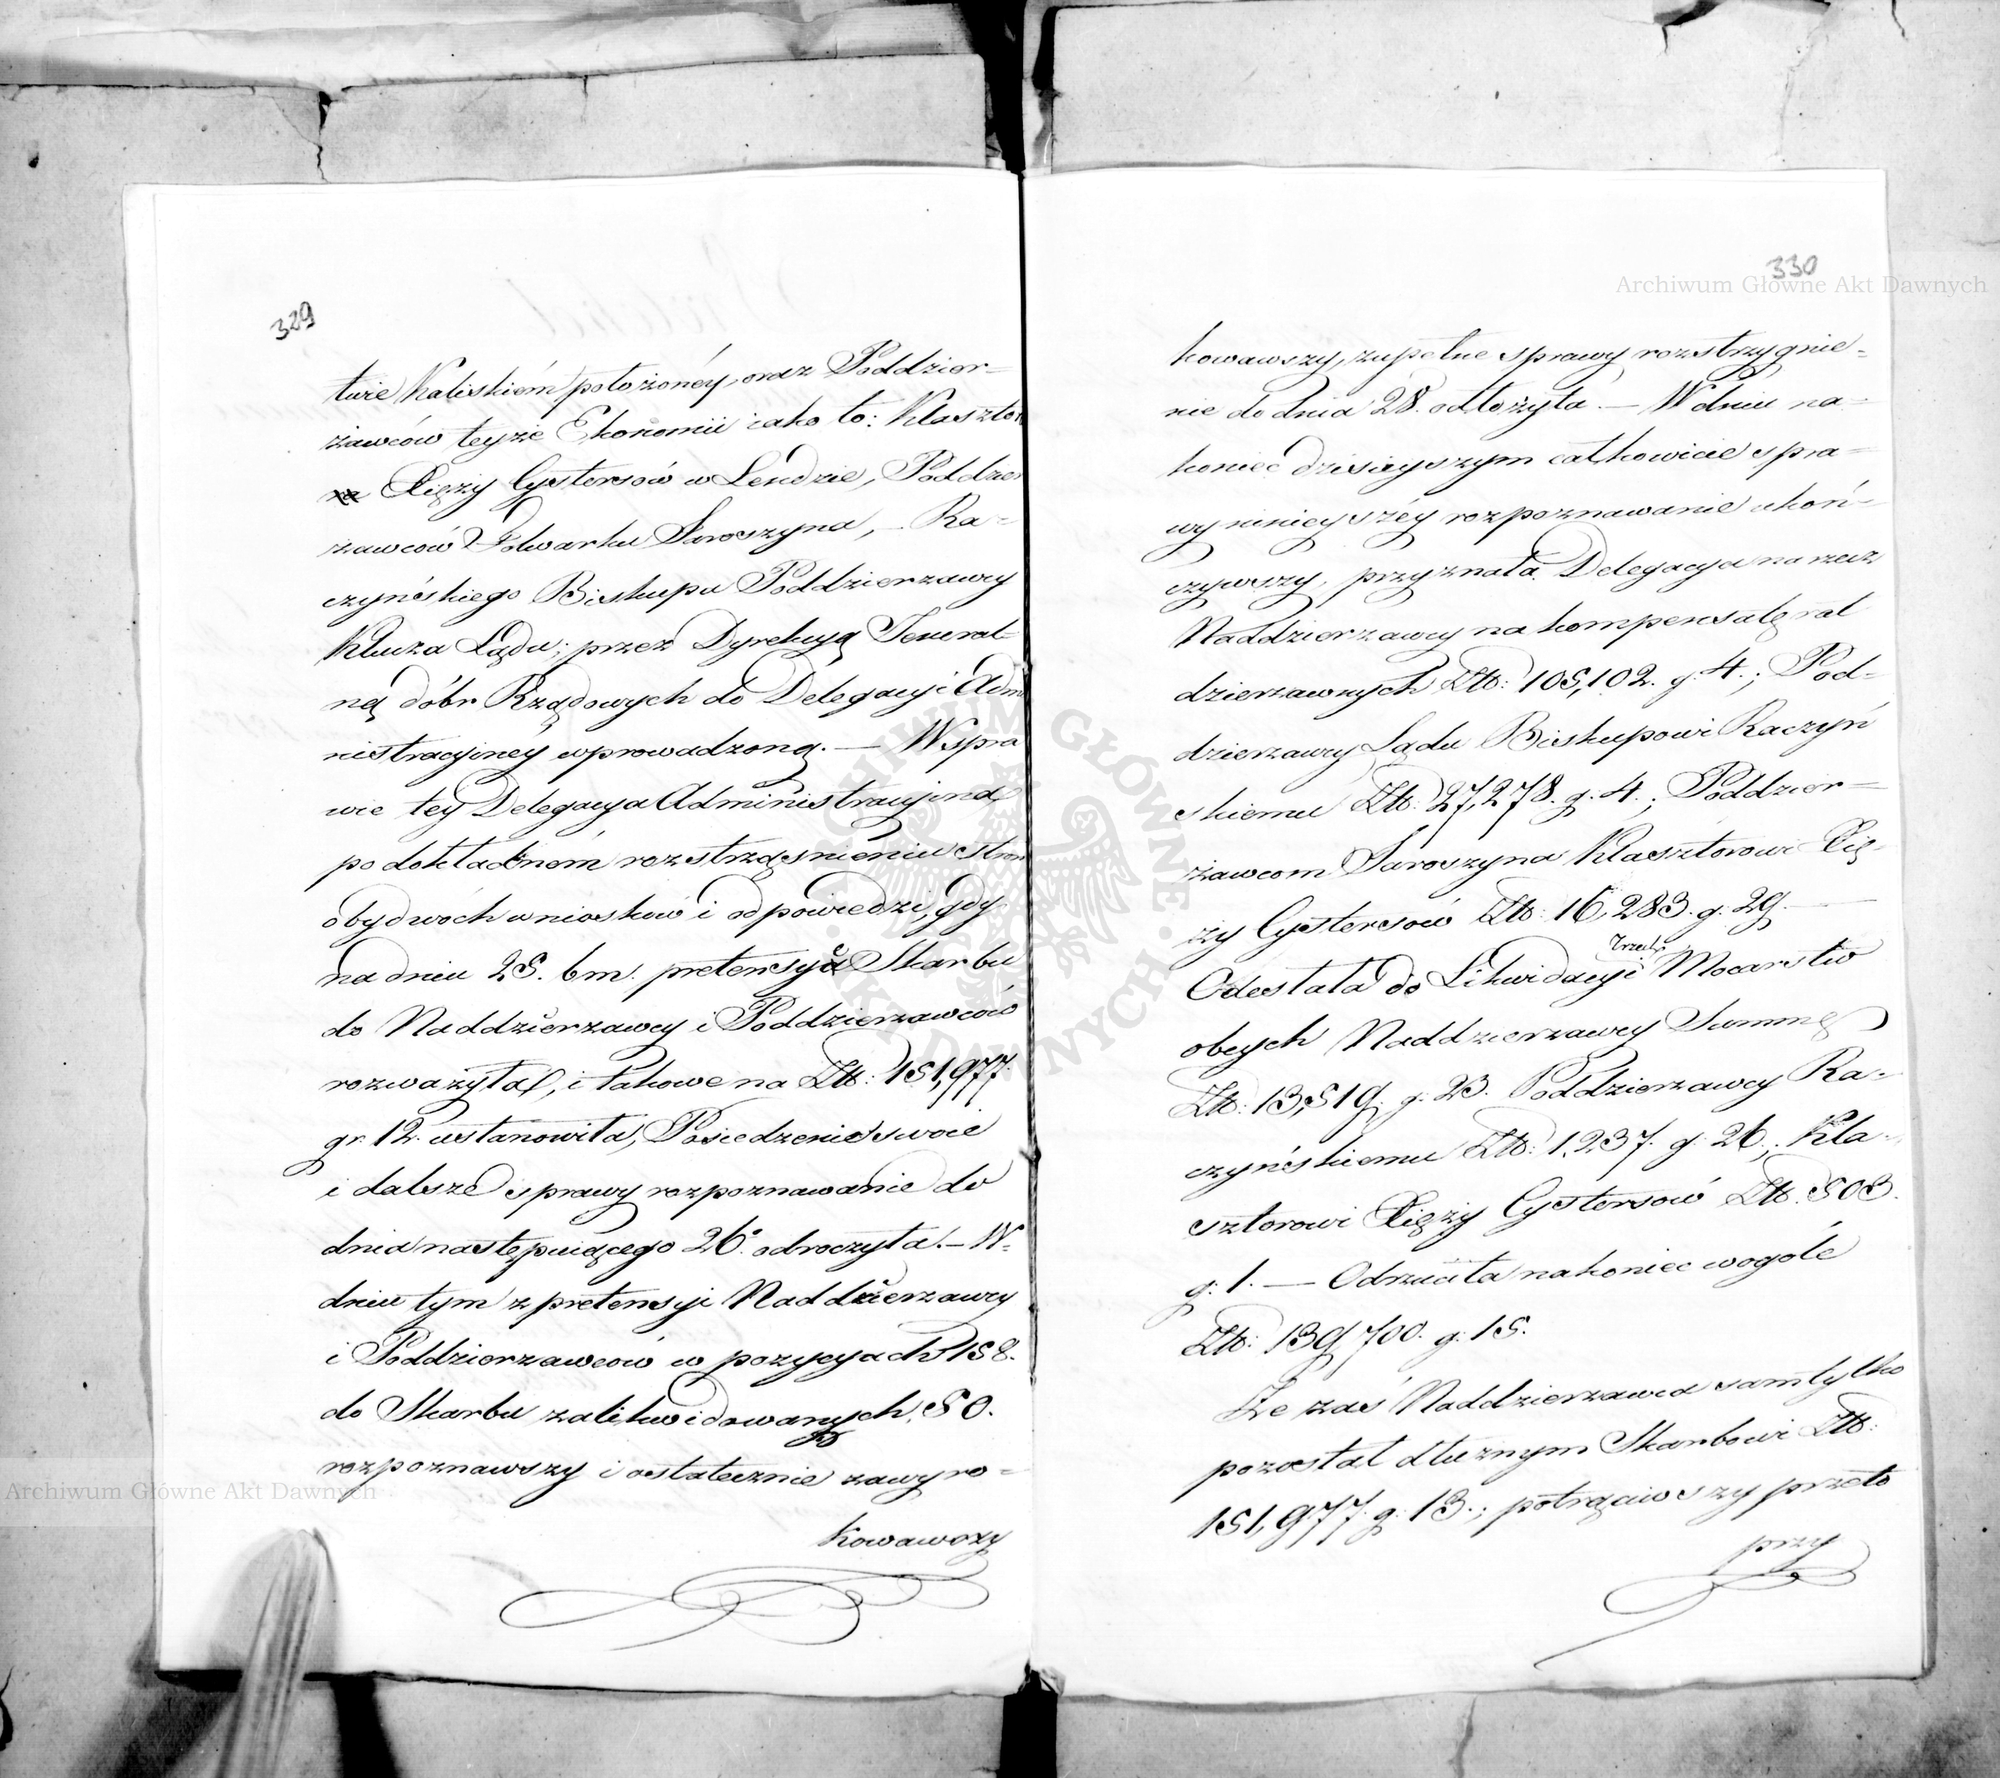 329
twie Kaliskiém położonéy, oraz Poddzier-
żawców teyże Ekonomii iako to: Klasztor
Xięży Cystersów w Lendzie, Poddzier
żawców Folwarku Saroszyna, - Ra-
czyńskiego Biskupa Poddzierżawcy
Klucza Lądu; przez Dyrekcyą Jeneral-
ną dóbr Rządowych do Delegacyi Admi
nistracyjnéy wprowadzoną. — W spra
wie téy Delegacya Administracyjna,
po dokładném roztrząśnieniu stron
obydwóch wniosków i odpowiedzi, gdy
na dniu 25. b.m. pretensye Skarbu
do Naddzierżawcy i Poddzierżawców
rozważyła, i takowe na Złt: 151,977.
gr. 12. ustanowiła, Posiedzenie swoie
i dalsze sprawy rozpoznawanie do
dnia następuiącego 26º odroczyła. — W-
dniu tym z pretensyi Naddzierżawcy
i Poddzierżawców w pozycyach 158.
do Skarbu zalikwidowanych, 50.
rozpoznawszy i ostatecznie zawyro-
kowawszy
330
kowawszy, zupełne sprawy rozstrzygnie-
nie do dnia 28. odłożyła. — W dniu na-
koniec dzisieyszym całkowicie spra-
wy ninieyszéy rozpoznawanie ukoń-
czywszy, przyznała Delegacya na rzecz
Naddzierżawcy na kompensatę rat
dzierżawnych Złt: 105,102. g. 4.; Pod-
dzierżawcy Lądu Biskupowi Raczyń
skiemu Złt: 27,278. g. 4.; Poddzier-
żawcom Saroszyna Klasztorowi Xię-
ży Cystersów Złt: 16,283. g. 29. —
Odesłała do Likwidacyi Trzech Mocarstw
obcych Naddzierżawcy Summę
Złt: 13,519. g. 23. Poddzierżawcy Ra-
czyńskiemu Złt: 1,237. g. 26.; Kla-
sztorowi Xięży Cystersów Złt. 503.
g. 1. — Odrzuciła nakoniec wogóle
Złt: 139,700. g. 15.
Że zaś Naddzierżawca sam tylko
pozostał dłużnym Skarbowi Złt:
151,977. g. 13.; potrąciwszy przeto
przy
Archiwum Główne Akt Dawnych
Archiwum Główne Akt Dawnych
ARCHIWUM GŁÓWNE AKT DAWNYCH